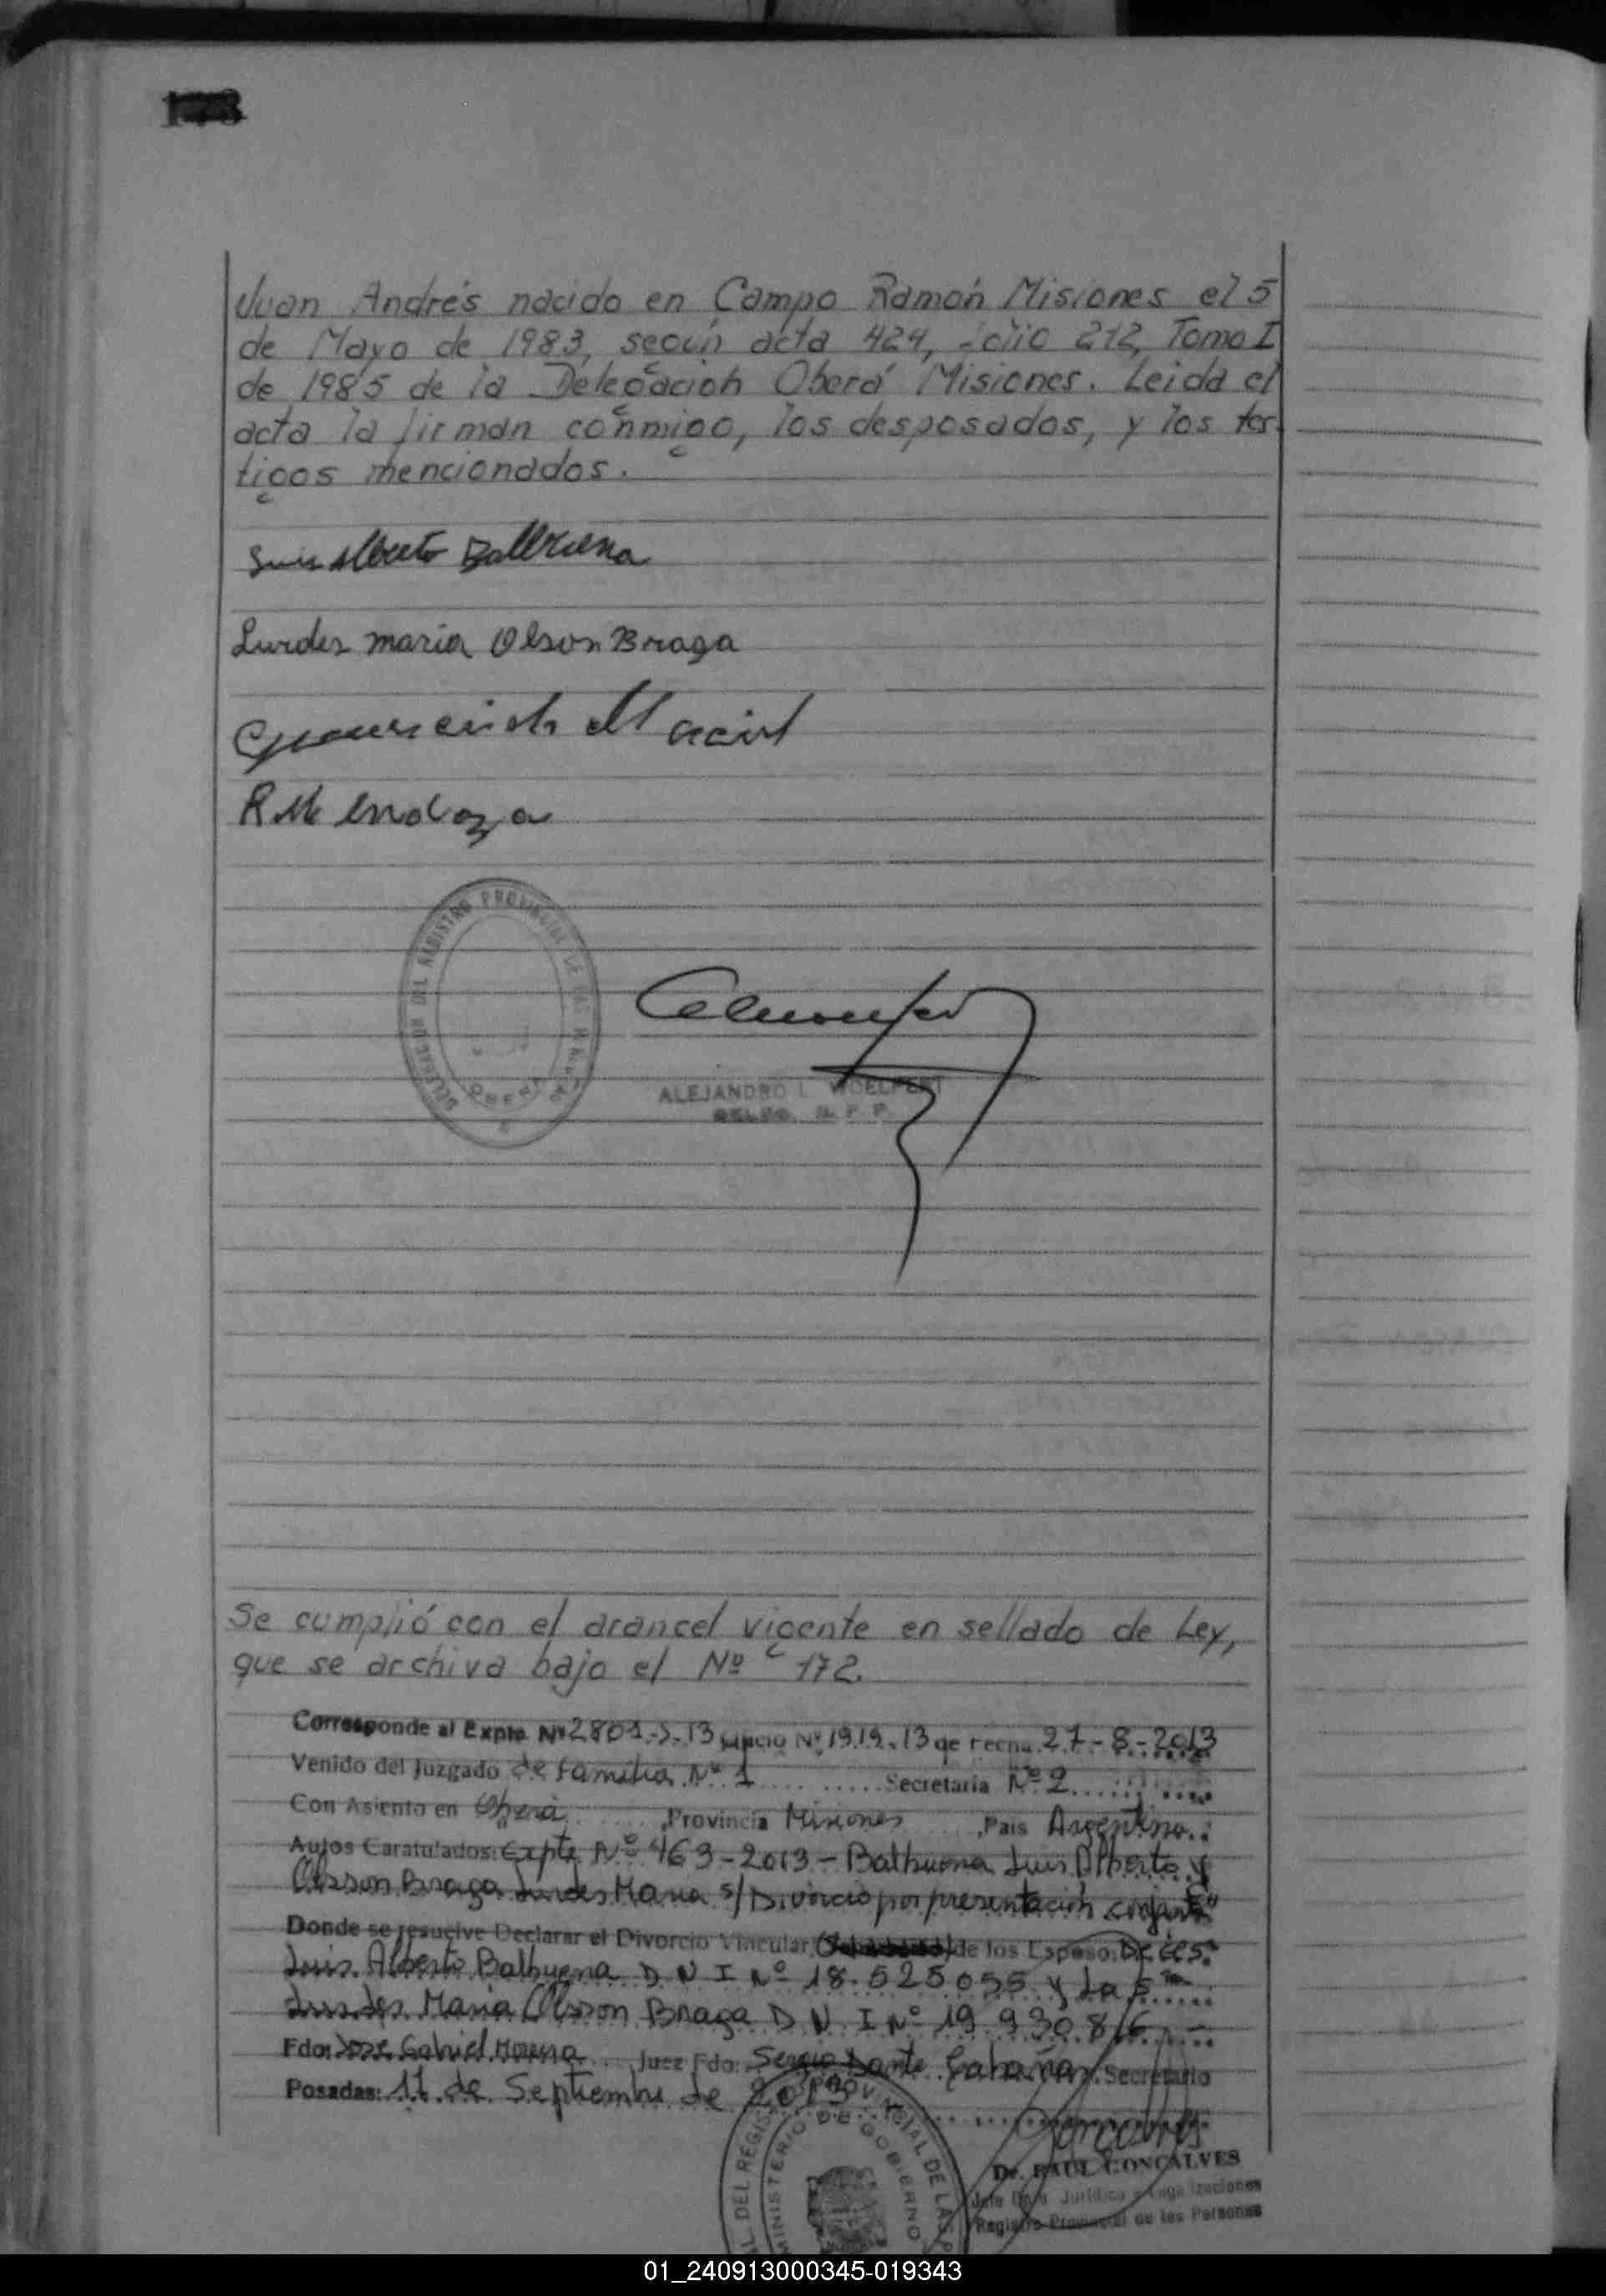 Juan Andrés nacido en Campo Ramón Misiones el 5
de Mayo de 1983, según acta 424, folio 212, Tomo I
de 1985 de la Delegación Oberá Misiones. Leida el
acta la firman conmigo, los desposados, y los tes-
tigos mencionados.
Luis Alberto Balbuena
Lurdes maria Olson Braga
R Mendoza
DELEGACION DEL REGISTRO PROVINCIAL DE LAS PERSONAS
OBERA
ALEJANDRO L. WOELFERT
DELEG. R. P. P.
Se cumplió con el arancel vigente en sellado de Ley,
que se archiva bajo el Nº 172.
Corresponde al Expte. Nº 2801-S-13 Oficio Nº 1919-13 de fecha 27-8-2013
Venido del Juzgado de Familia Nº 1 Secretaria Nº 2
Con Asiento en Oberá, Provincia Misiones, Pais Argentina.
Autos Caratulados: Expte Nº 463-2013 - Balbuena Luis Alberto y
Olsson Braga Lurdes Maria s/ Divorcio por presentación conjunta"
Donde se resuelve Declarar el Divorcio Vincular de los Esposo:
Luis Alberto Balbuena D N I Nº 18.525.055 y La Sra
Lurdes Maria Olsson Braga D N I Nº 19 930 816
Fdo: Jose Gabriel Moreira Juez Fdo: Sergio Dante Cabañas Secretario
Posadas: 11 de Septiembre de 2013
DEL REGISTRO PROVINCIAL DE LAS
MINISTERIO DE GOBIERNO
Dr. RAUL GONCALVES
Jefe Dpto Juridico y Legalizaciones
Registro Provincial de las Personas
01_240913000345-019343